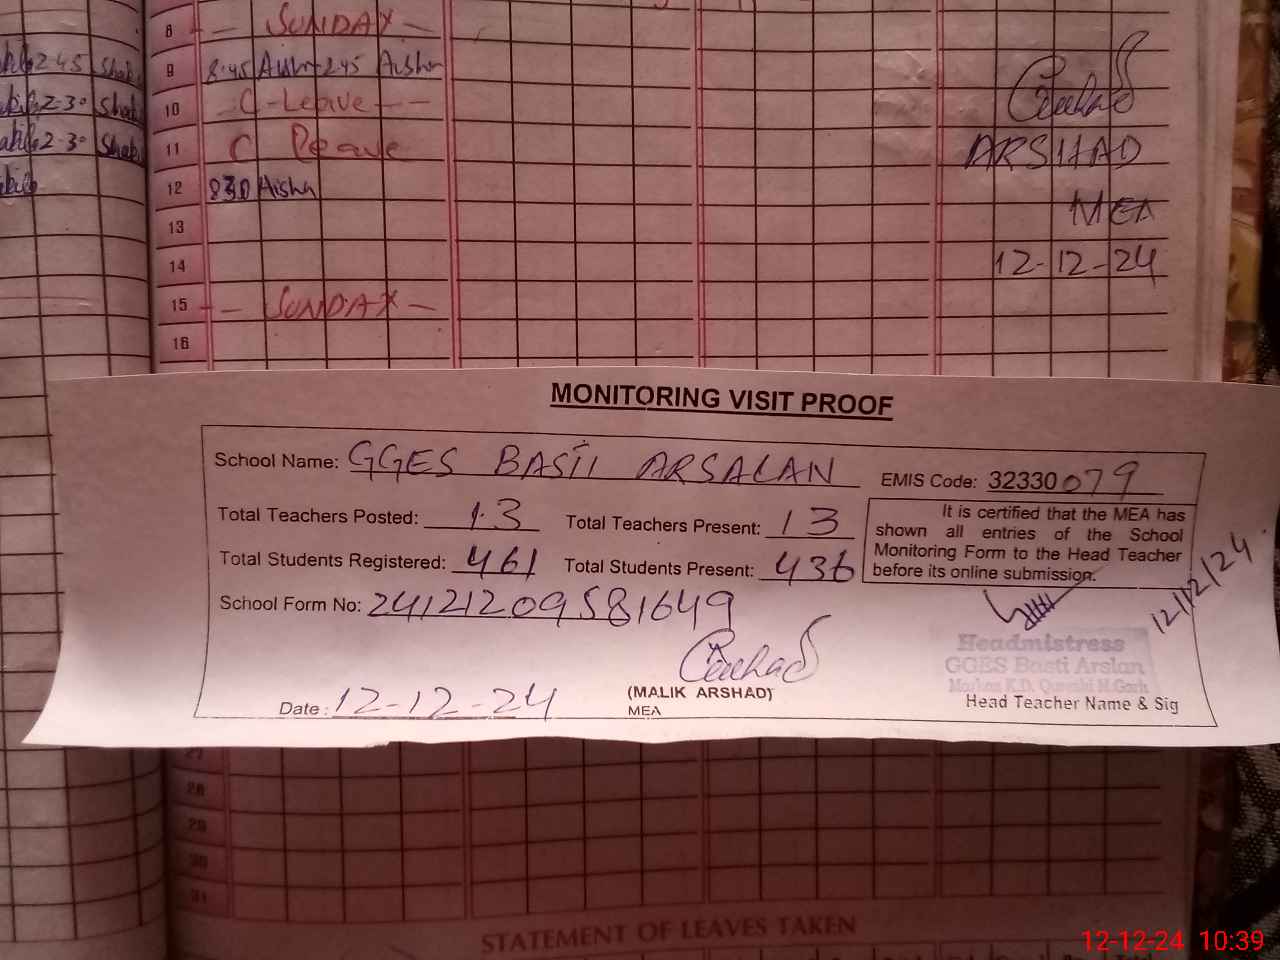 8 - SUNDAY -
2.45 Shak 9 8.45 Aisha 2.45 Aisha
2.30 Shak 10 - C - Leave - -
2.30 Shak 11 C Leave
12 8.30 Aisha
13
14
15 - SUNDAY -
16
ARSHAD
MEA
12-12-24
MONITORING VISIT PROOF
School Name: GGES BASTI ARSALAN EMIS Code: 32330079
Total Teachers Posted: 13 Total Teachers Present: 13
Total Students Registered: 461 Total Students Present: 436
It is certified that the MEA has
shown all entries of the School
Monitoring Form to the Head Teacher
before its online submission.
School Form No: 24121209581649
12/12/24
Headmistress
GGES Basti Arslan
Date: 12-12-24 (MALIK ARSHAD)
MEA
Head Teacher Name & Sig
27
28
29
30
31
STATEMENT OF LEAVES TAKEN
12-12-24 10:39